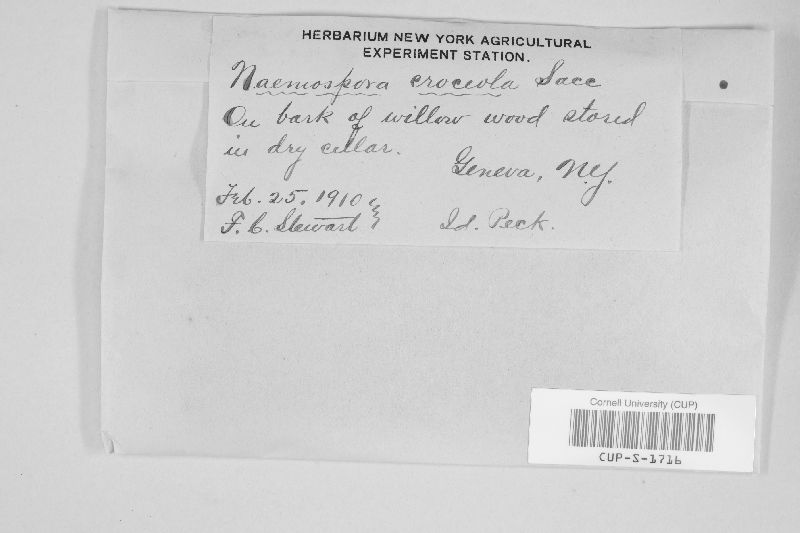 HERBARIUM NEW YORK AGRICULTURAL
EXPERIMENT STATION.
Naemospora croceola Sacc
On bark of willow wood stored
in dry cellar.
Geneva, N.Y.
Feb. 25. 1910
F. C. Stewart
Id. Peck.
Cornell University (CUP)
CUP-S-1716